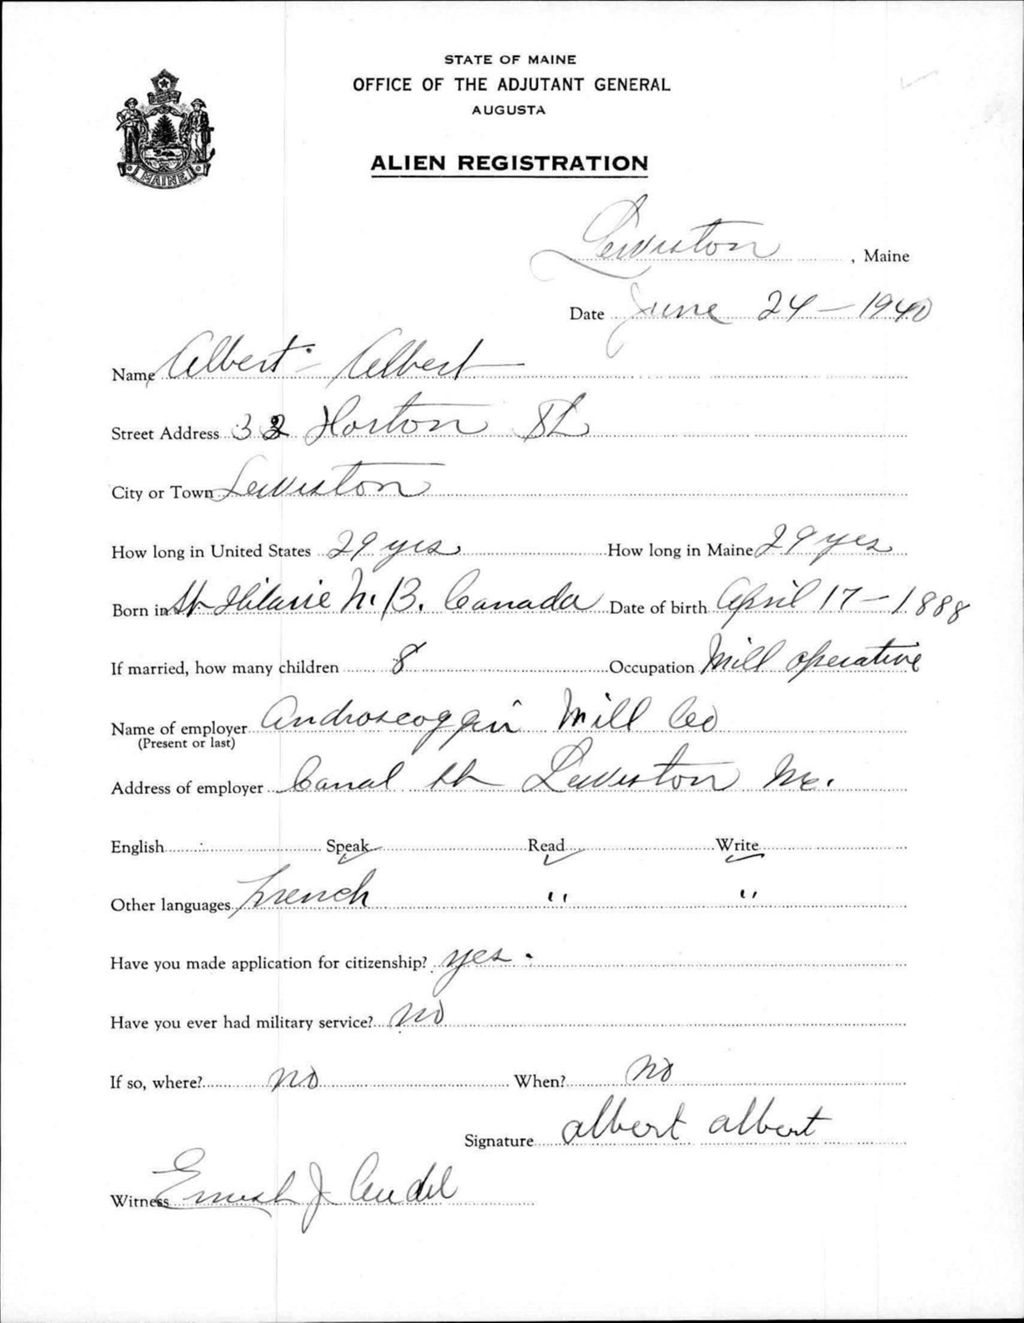 STATE OF MAINE
OFFICE OF THE ADJUTANT GENERAL
AUGUSTA
MAINE
ALIEN REGISTRATION
Lewiston, Maine
Date June 24 - 1940
Name Albert - Albert
Street Address 32 Horton St
City or Town Lewiston
How long in United States 29 yrs How long in Maine 29 yrs
Born in St Hilarie N.B. Canada Date of birth April 17 - 1888
If married, how many children 8 Occupation Mill operative
Name of employer Androscoggin Mill Co
(Present or last)
Address of employer Canal St Lewiston Me.
English Speak ✓ Read ✓ Write ✓
Other languages French " "
Have you made application for citizenship? yes.
Have you ever had military service? no
If so, where? no When? no
Signature albert albert
Witness Ernest J